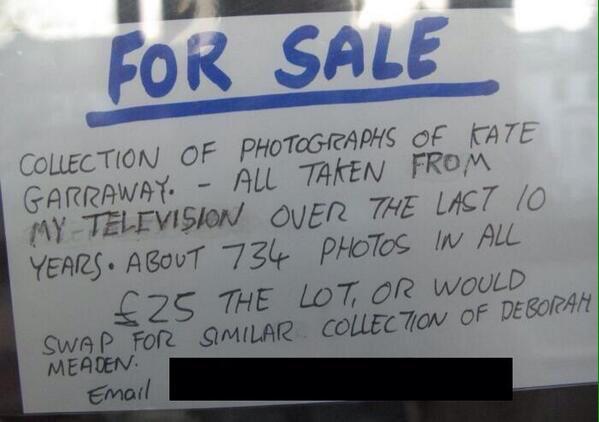 FOR SALE
COLLECTION OF PHOTOGRAPHS OF KATE
GARRAWAY. - ALL TAKEN FROM
MY TELEVISION OVER THE LAST 10
YEARS. ABOUT 734 PHOTOS IN ALL
£25 THE LOT, OR WOULD
SWAP FOR SIMILAR COLLECTION OF DEBORAH
MEADEN.
Email